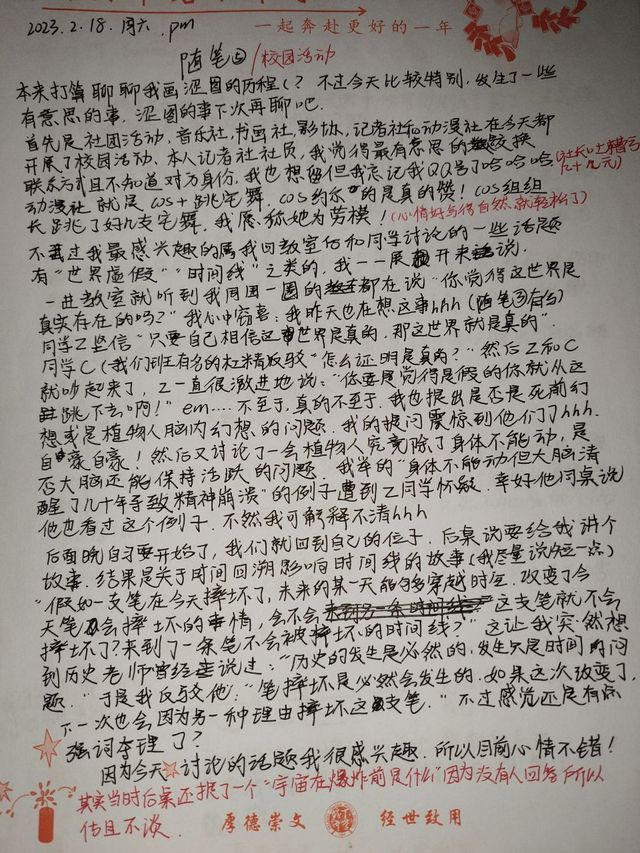 一起奔赴更好的一年
2023.2.18.周六. pm
随笔④/校园活动
本来打算聊聊我画涩图的历程(? 不过今天比较特别,发生了一些
有意思的事.涩图的事下次再聊吧.
首先是社团活动,音乐社,书画社,影协,记者社和动漫社在今天都
开展了校园活动、本人记者社社员,我觉得最有意思的是交换
联系方式且不知道对方身份,我也想留但我忘记我QQ号了哈哈哈
动漫社就是cos+跳宅舞.cos的乐 的是真的赞! cos组组
长跳了好几支宅舞.我愿称她为劳模!(心情好写得自然就轻松了)
不过我最感兴趣的属我回教室后和同学讨论的一些话题
有“世界虚假”“时间线”之类的,我一一展开来说.
一进教室就听到我周围一圈的都在说“你觉得这世界是
真实存在的吗?”我心中窃喜:我昨天也在想这事hhh(随笔③有的)
同学Z坚信“只要自己相信这世界是真的,那这世界就是真的”.
同学C(我们班有名的杠精)反驳“怎么证明是真的?”然后Z和C
就吵起来了,Z一直很激进地说:“你要是觉得是假的你就从这
跳下去啊!”em....不至于,真的不至于.我也提出是否是死前幻
想或是植物人脑内幻想的问题.我的提问震惊到他们了hhh.
自豪自豪! 然后又讨论了一会植物人究竟除了身体不能动,是
否大脑还能保持活跃的问题.我举的“身体不能动但大脑清
醒了几十年导致精神崩溃”的例子遭到Z同学怀疑.幸好他同桌说
他也看过这个例子.不然我可解释不清hhh
后面晚自习要开始了,我们就回到自己的位子.后桌说要给我讲个
故事.结果是关于时间回溯影响时间线的故事(我尽量说短一点)
“假如一支笔在今天摔坏了,未来的某一天能够穿越时空,改变了今
天笔会摔坏的事情,会不会 这支笔就不会
摔坏了?来到了一条笔不会被摔坏的时间线?”这让我突然想
到历史老师曾经说过:“历史的发生是必然的,发生只是时间问
题.”于是我反驳他.“笔摔坏是必然会发生的.如果这次改变了,
下一次也会因为另一种理由摔坏这支笔.”不过感觉还是有点
强词夺理了?
因为今天讨论的话题我很感兴趣.所以目前心情不错!
其实当时后桌还报了一个“宇宙在爆炸前是什么”因为没有人回答所以
估且不谈.
厚德崇文 经世致用